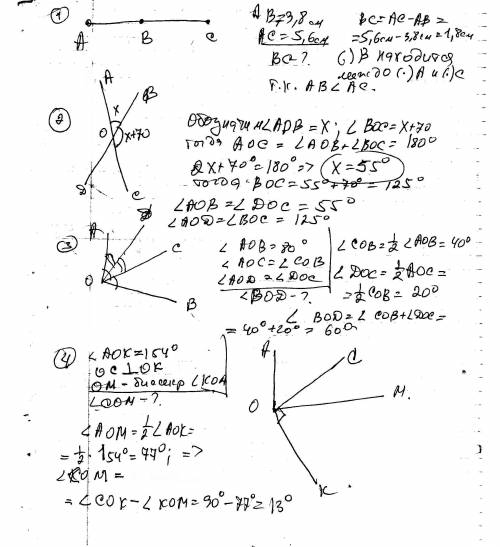 1
A B C
AB=3,8 см
AC=5,6 см
BC-?
BC=AC-AB=
=5,6см-3,8см=1,8см
(·) B находится
между (·) A и (·) C
т.к. AB<AC.
2
A B x O x+70 D C
Обозначим ∠AOB=x; ∠BOC=x+70
тогда AOC = ∠AOB+∠BOC=180°
2x+70°=180°=> x=55°
тогда BOC=55°+70°=125°
∠AOB=∠DOC=55°
∠AOD=∠BOC=125°
3
A D C O B
∠AOB=80°
∠AOC=∠COB
∠AOD=∠DOC
∠BOD-?
∠COB=½∠AOB=40°
∠DOC=½AOC=
=½COB=20°
∠BOD=∠COB+∠DOC=
=40°+20°=60°
4
∠AOK=154°
OC⊥OK
OM-биссектр ∠KOA
∠COM-?
A C M O K
∠AOM=½∠AOK=
=½·154°=77°; =>
∠COM=
=∠COK-∠KOM=90°-77°=13°